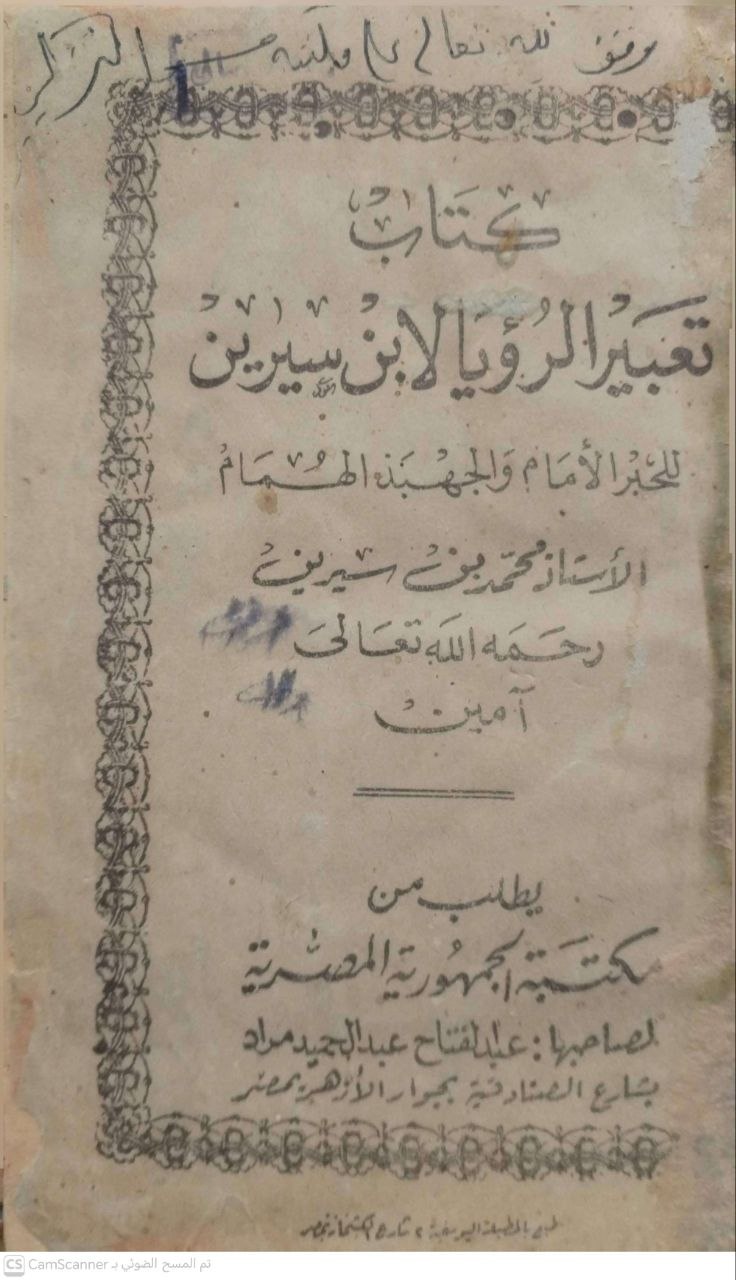 وقف لله تعالى
كتاب
تعبير الرؤيا لابن سيرين
للحبر الأمام والجهبذ الهمام
الأستاذ محمد بن سيرين
رحمه الله تعالى
آمين
يطلب من
مكتبة الجمهورية المصرية
لصاحبها : عبد الفتاح عبد الحميد مراد
بشارع الصنادقية بجوار الأزهر بمصر
طبع بالمطبعة اليوسفية ٢ شارع
CS CamScanner تم المسح الضوئي بـ